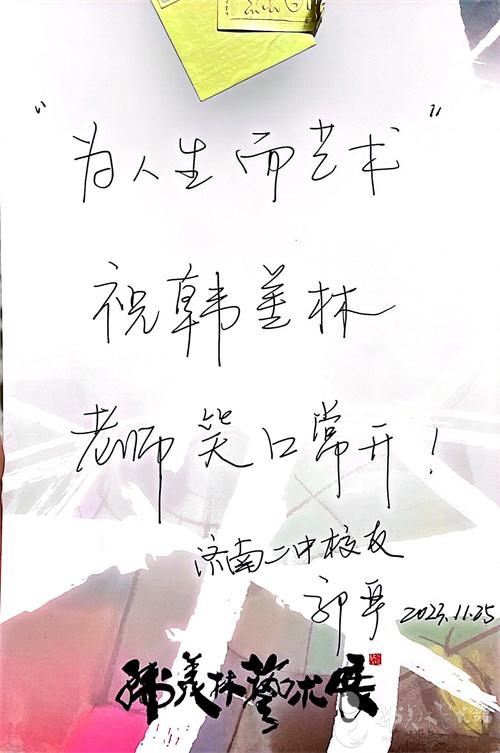 “为人生而艺术”
祝韩美林
老师笑口常开！
济南二中校友
郭
2023.11.25
韩美林藝术展